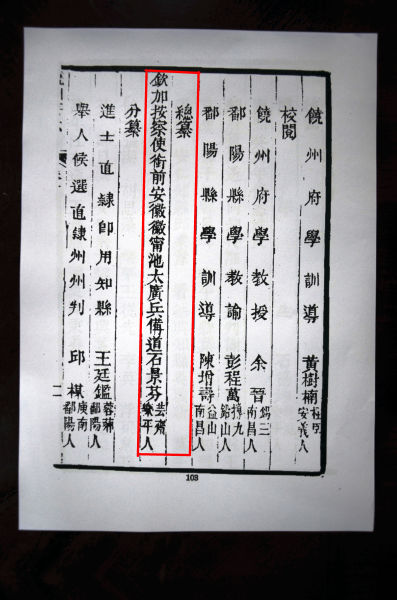 饒州府學訓導 黃樹楠 極臣 安義人
校閱
饒州府學教授 余晉 錫三 南昌人
鄱陽縣學教諭 彭程萬 摶九 鉛山人
鄱陽縣學訓導 陳増壽 益山 南昌人
總纂
欽加按察使銜前安徽徽甯池太廣兵備道石景芬 芸齋 樂平人
分纂
進士直隸即用知縣 王廷鑑 蓉 鄱陽人
舉人候選直隸州州判 邱 庚南 鄱陽人
103